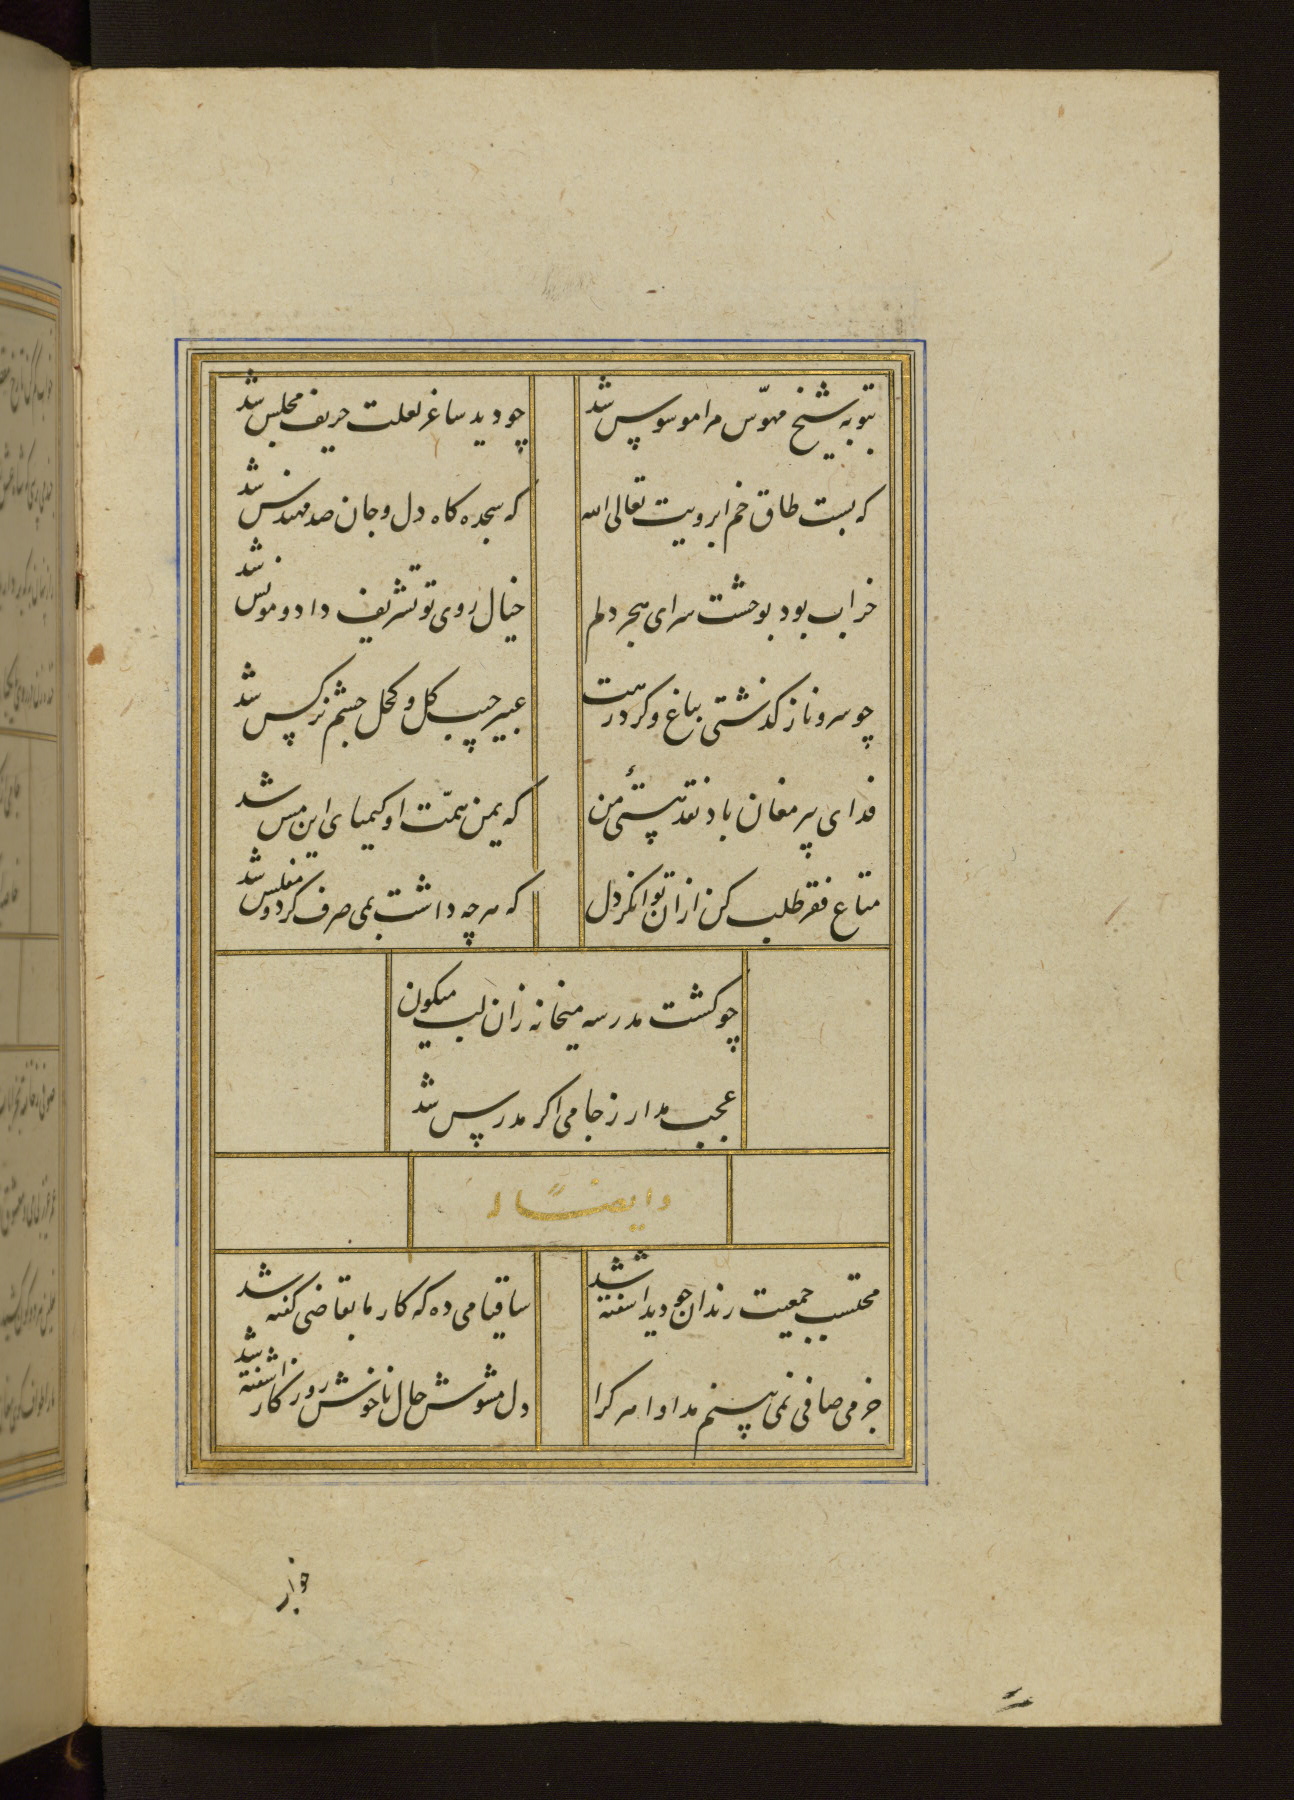 بتوبه شیخ مهوّس مرا موسوس شد
چو دید ساغر لعلت حریف مجلس شد
که بست طاق خم ابرویت تعالی الله
که سجده کاه دل و جان صد مهندس شد
خراب بود بوحشت سرای هجر دلم
خیال روی تو تشریف داد و مونس شد
چو سرو ناز کذشتی بباغ و کرد رهت
عبیر جیب کل و کحل چشم نرکس شد
فدای پیر مغان باد نقد هستیٔ من
که یمن همّت او کیمیای این مس شد
متاع فقر طلب کن از ان توانکر دل
که هر چه داشت بمی صرف کرد و مفلس شد
چو کشت مدرسه میخانه زان لب میکون
عجب مدار ز جامی اکر مدرس شد
وایضًا له
محتسب جمعیت رندان چو دید اشفته شد
ساقیا می ده که کار ما بقاضی کفته شد
جز می صافی نمی بینم مداوا هر کرا
دل مشوش حال ناخوش روزکار اشفته شد
خوار